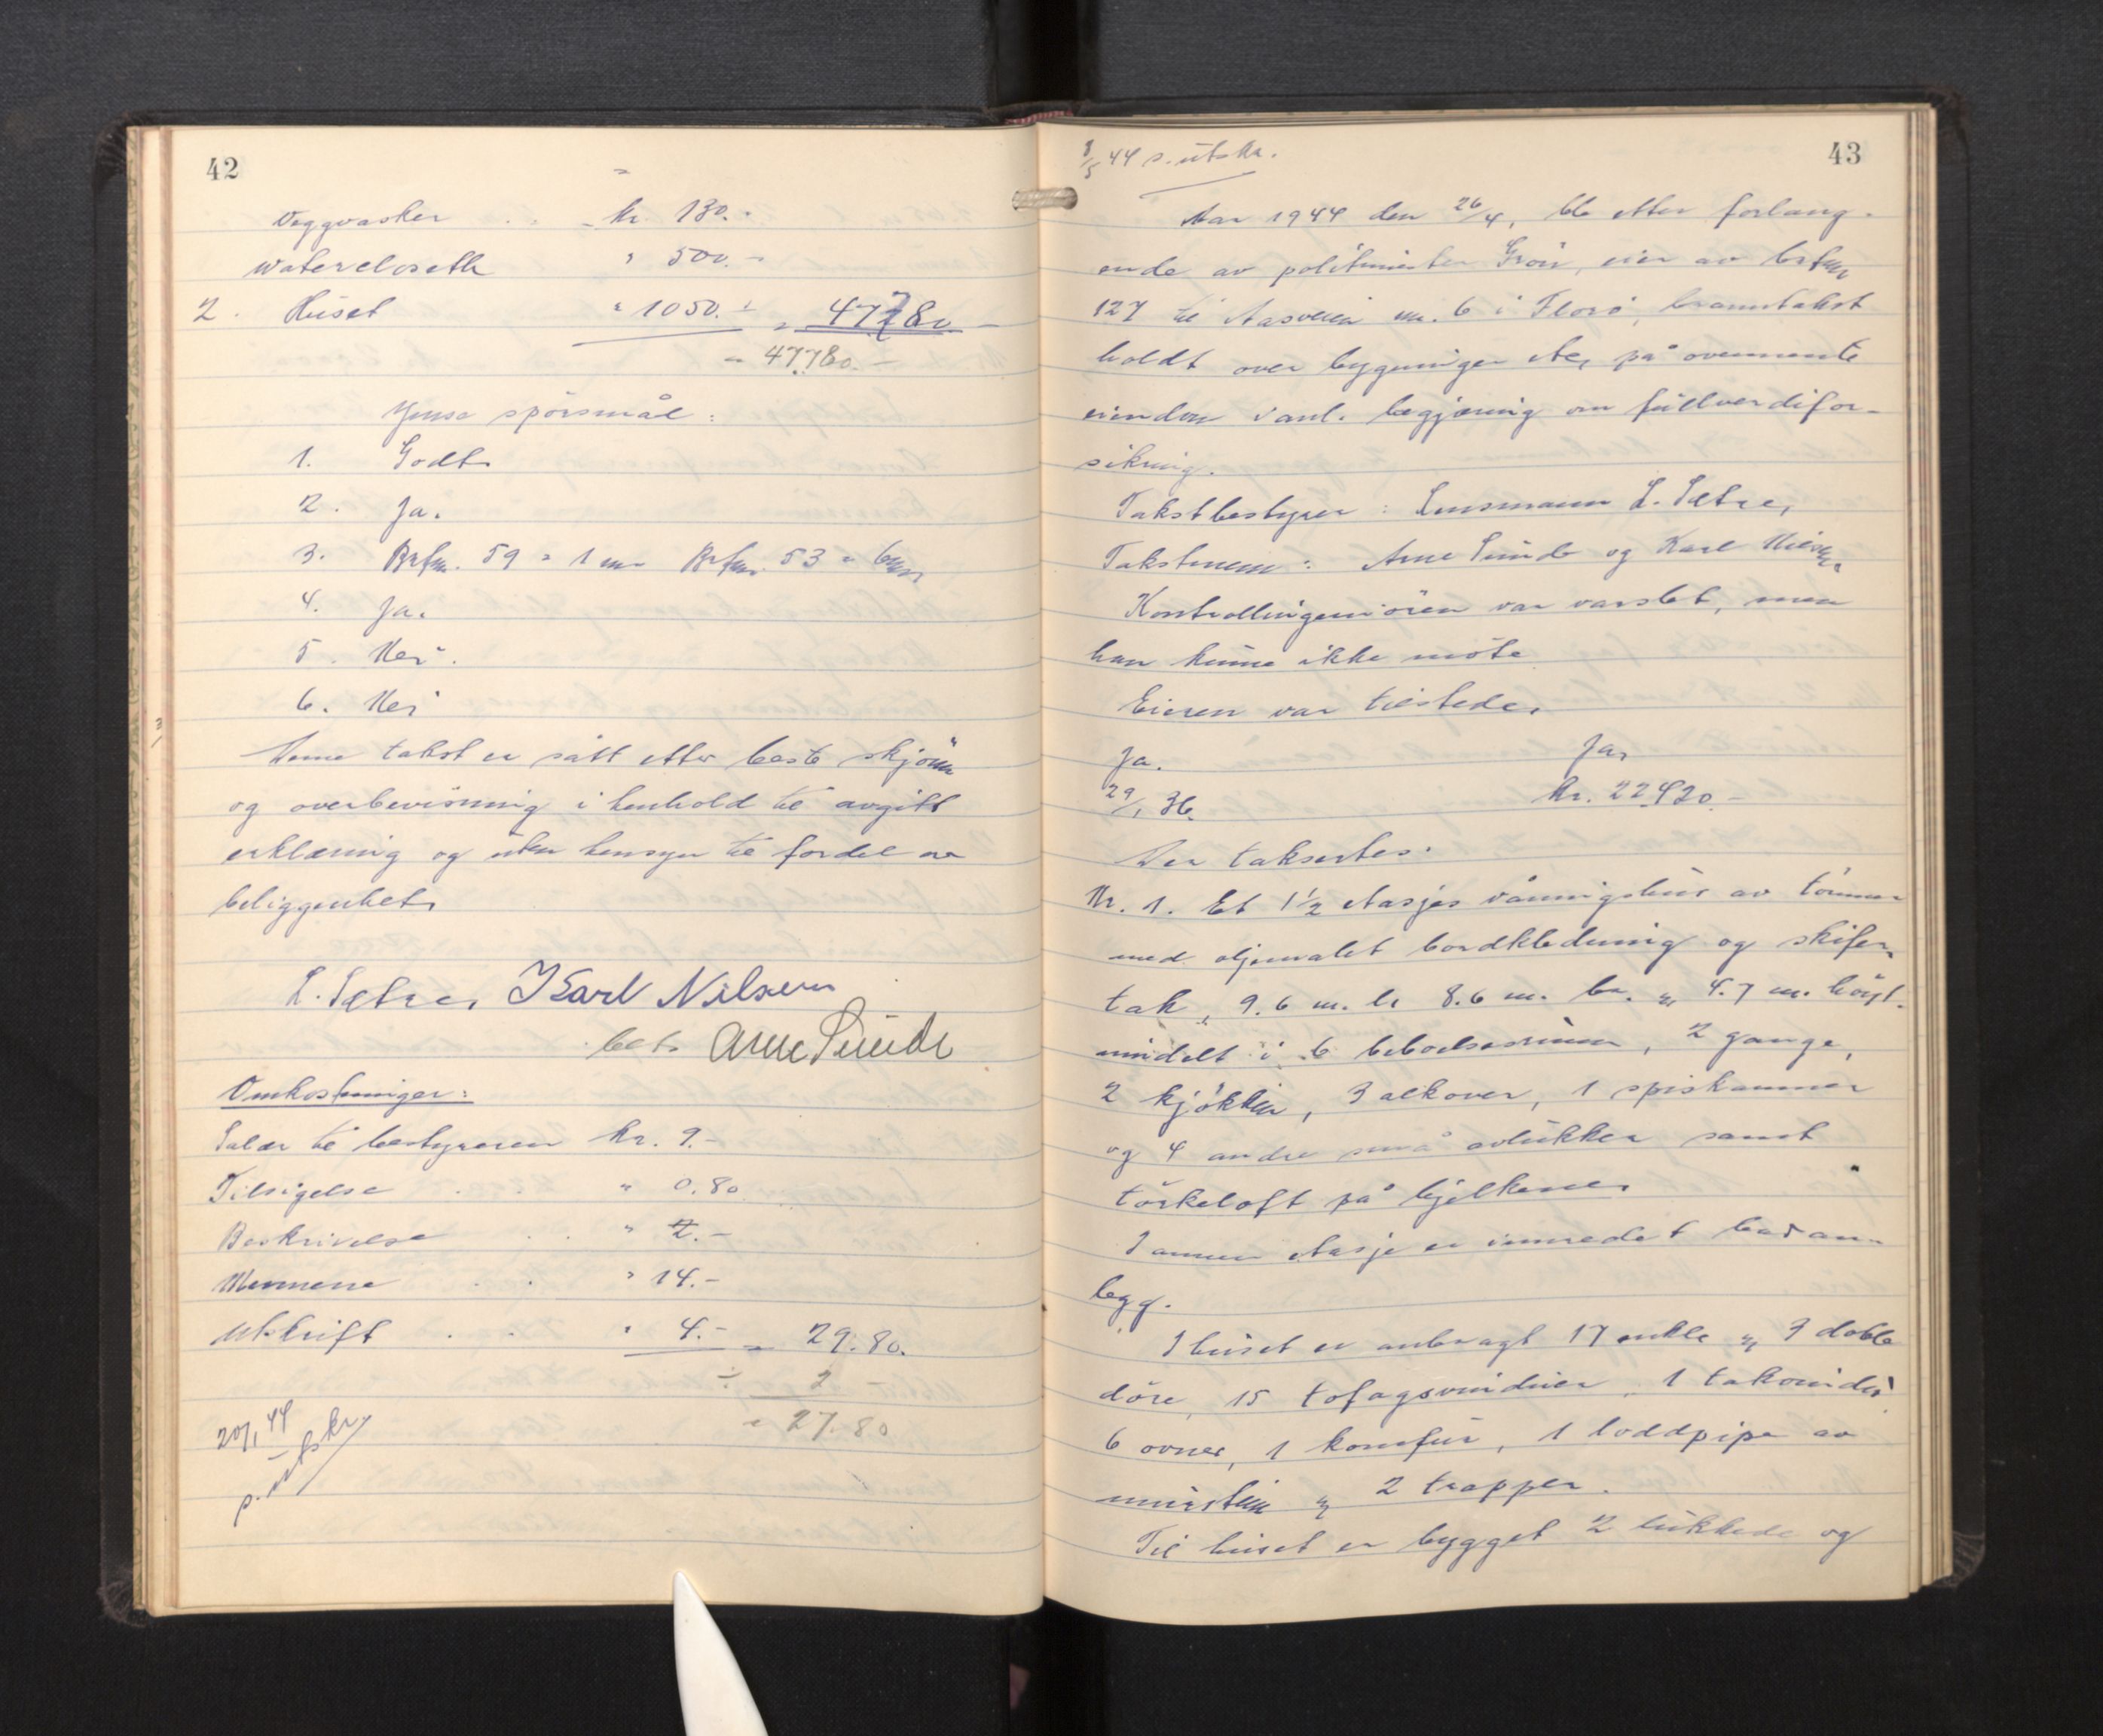 42
Veggvasker . . - Kr. 130.-
Watercloseth " 500.-
2. Huset " 1050.- = 47780.-
= 47780.-
Ymse spörsmål:
1. Godt
2. Ja.
3. Brfnr. 59 = 1 m. Brfnr. 53 = 6 m
4. Ja.
5. Nei.
6. Nei
Denne takst er satt etter beste skjönn
og overbevisning i henhold til avgitt
erklæring og uten hensyn til fordel av
beliggenhet.
L. Sætre, Karl Nilsen
Arne Sunde
Omkostninger:
Salær til bestyreren Kr. 9.-
Tilsigelse . . " 0.80
Beskrivelse . . " 2.-
Mennene . . " 14.-
Utskrift . . " 4.- = 29.80.
÷ 2 -
= 27.80
20/1 44
p. utskr.
43
8/5 44 p. utskr.
Aar 1944 den 26/4, ble etter forlang-
ende av politimester Grön, eier av brfnr
127 til Aasveien nr. 6 i Florö, branntakst
holdt over bygninger etc, på ovennevnte
eiendom i anl. begjæring om fullverdifor-
sikring.
Takstbestyrer: Lensmann L. Sætre,
Takstmenn: Arne Sunde og Karl Nilsen.
Kontrollingeniören var varslet, men
han kunne ikke möte
Eieren var tilstede.
Ja. Ja,
29/1 36. Kr. 22.420.-
Der takserbes:
Nr. 1. Et 1 1/2 etasjes våningshus av tömmer
med oljemalet bordkledning og skifer-
tak, 9.6 m. l. 8.6 m. br. og 4.7 m. höyt.
inndelt i 6 beboelsesrum, 2 gange,
2 kjökken, 3 alkover, 1 spiskammer
og 4 andre små avlukker samt
törkeloft på bjelkene.
I annen etasje er innredet badan-
legg.
I huset er anbragt 17 enkle og 3 doble
döre, 15 tofagsvinduer, 1 takvindu
6 ovner, 1 komfur, 1 loddpipe av
murstein og 2 trapper.
Til huset er bygget 2 lukkede og